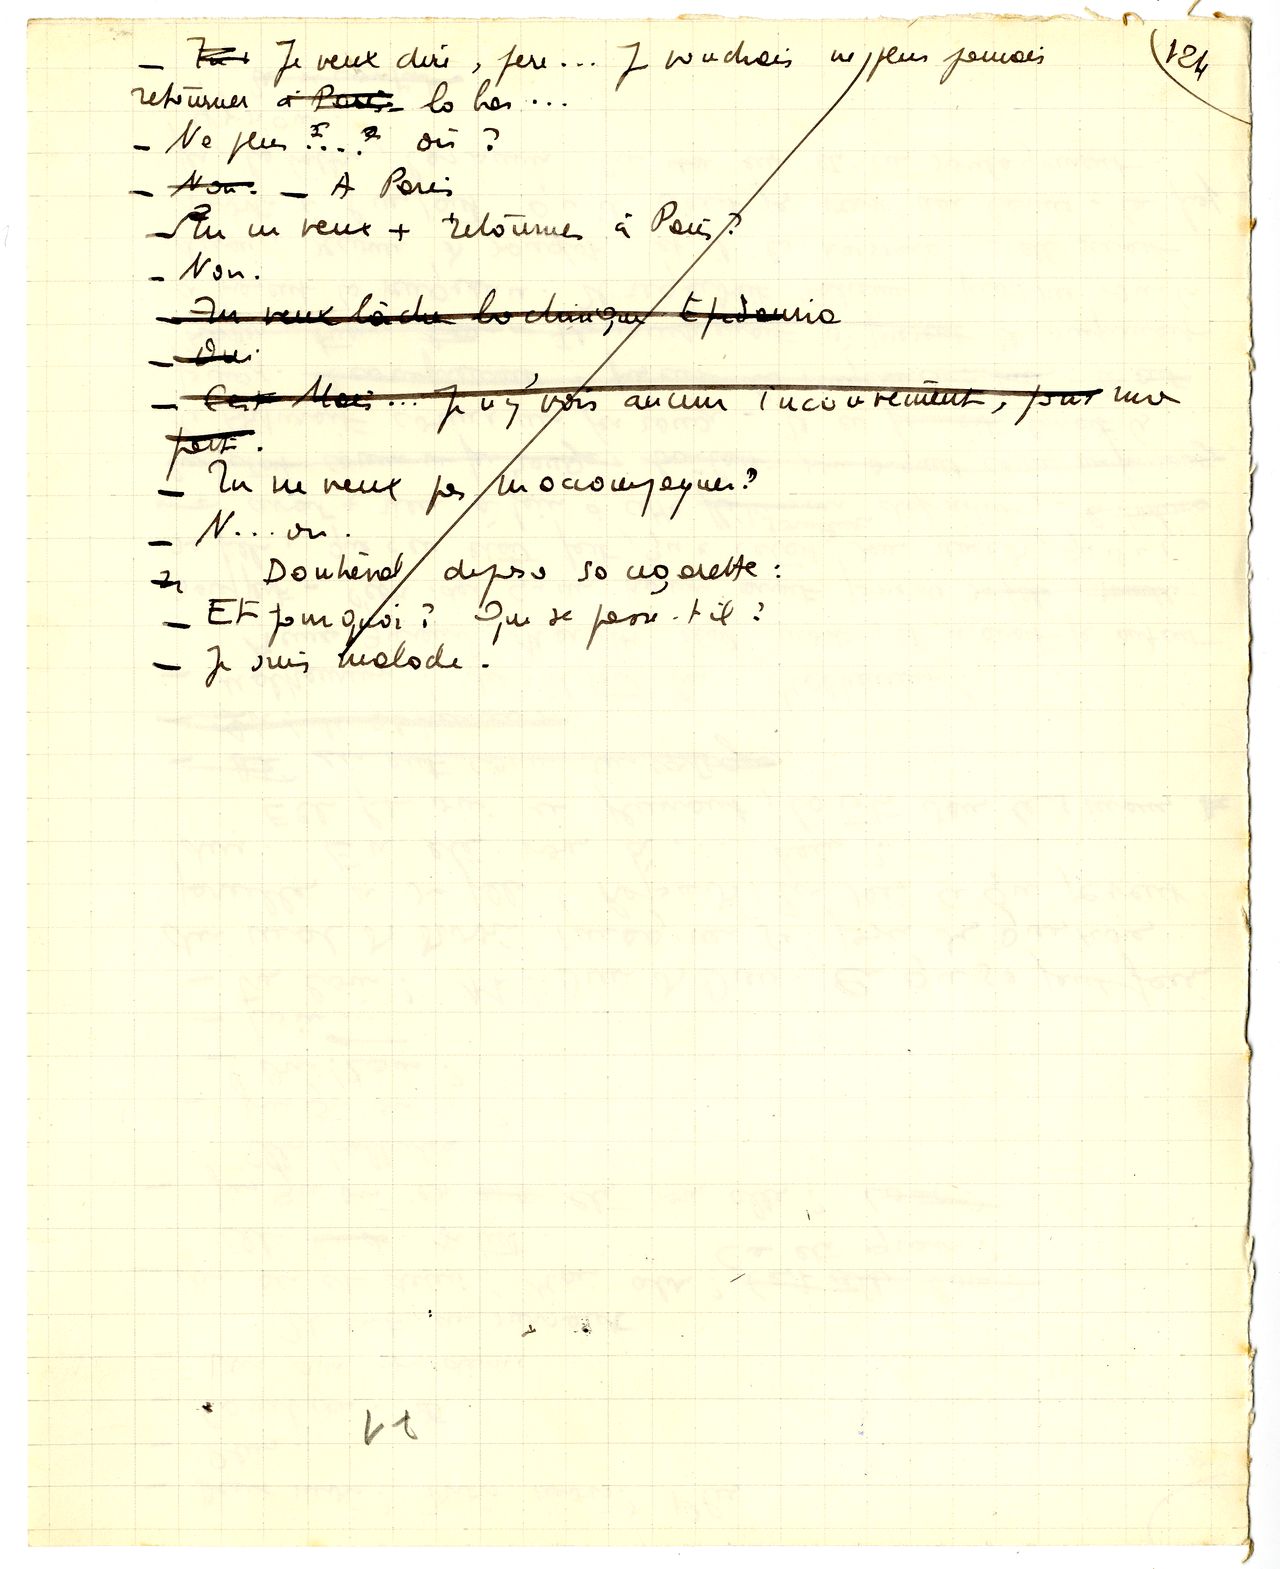 124
— Tu Je veux dire, père... Je voudrais ne plus jamais
retourner à Paris là bas...
— Ne plus ?...? où ?
— Non. — A Paris
— Tu ne veux + retourner à Paris ?
— Non.
— Tu veux lâcher la clinique Epidauria
— Oui.
— C'est Mais... Je n'y vois aucun inconvénient, pour ma
part.
— Tu ne veux pas m'accompagner ?
— N...on.
Douhénol déposa sa cigarette :
— Et pourquoi ? Que se passe-t-il ?
— Je suis malade.